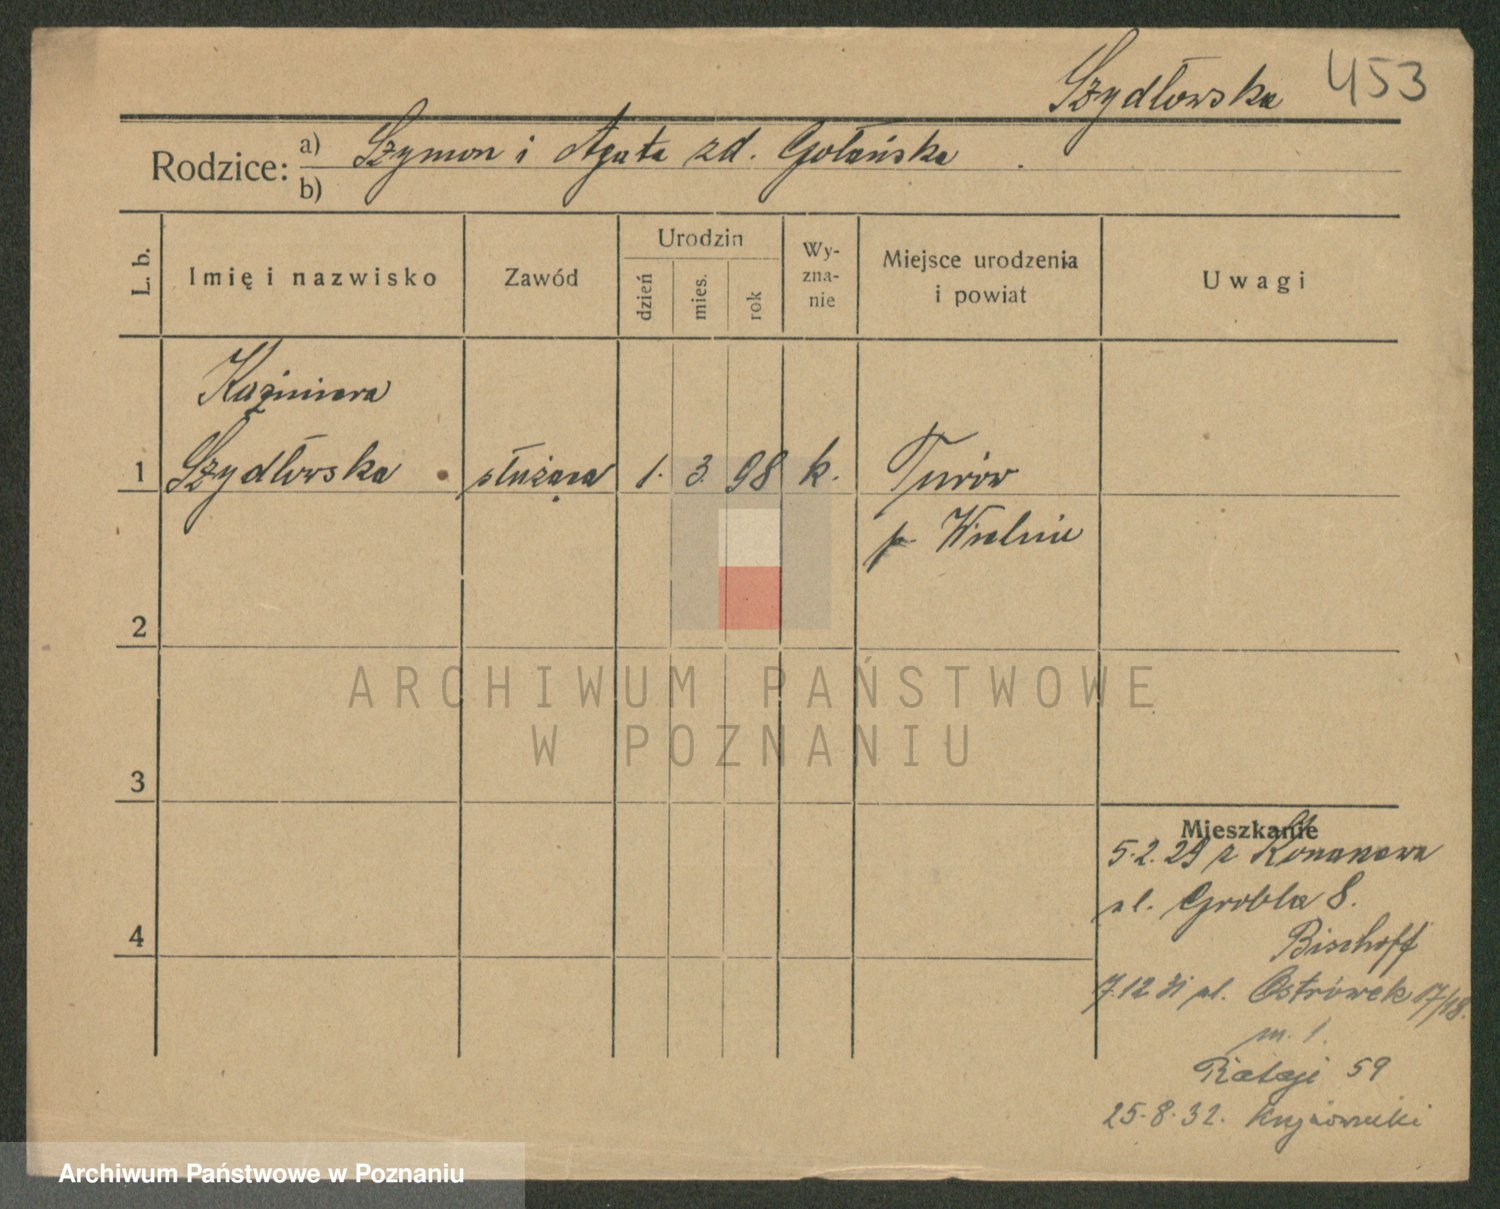 Szydłowska 453
Rodzice: a) Szymon i Agata zd. Gołańska
b)
L. b.
Imię i nazwisko
Zawód
Urodzin
dzień
mies.
rok
Wy-
zna-
nie
Miejsce urodzenia
i powiat
Uwagi
Kazimiera
1 Szydłowska służąca 1. 3. 98 k. Turów
p. Wieluń
2
3
4
Mieszkanie
5.2.29 z Konanowa
ul. Grobla 8.
Bischoff
7.12 31 ul. Ostrówek 17/18.
m. 1.
Rataje 59
25.8.32.
ARCHIWUM PAŃSTWOWE
W POZNANIU
Archiwum Państwowe w Poznaniu